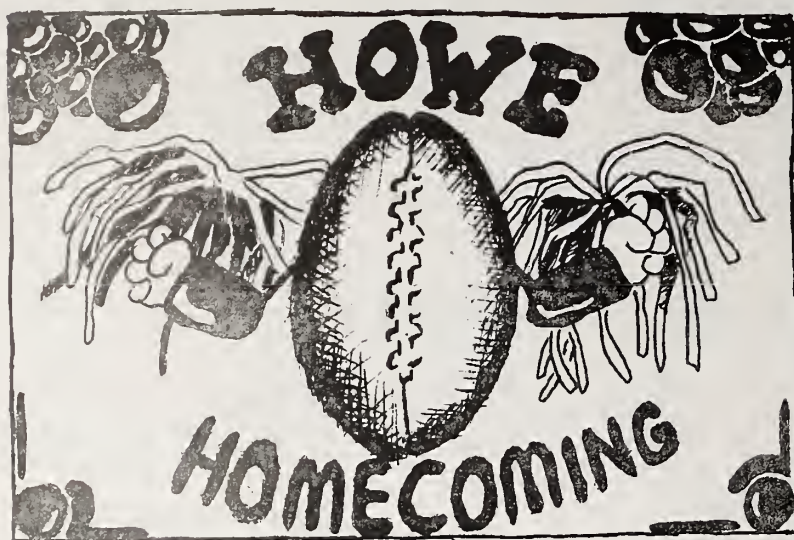 HOWE
HOMECOMING